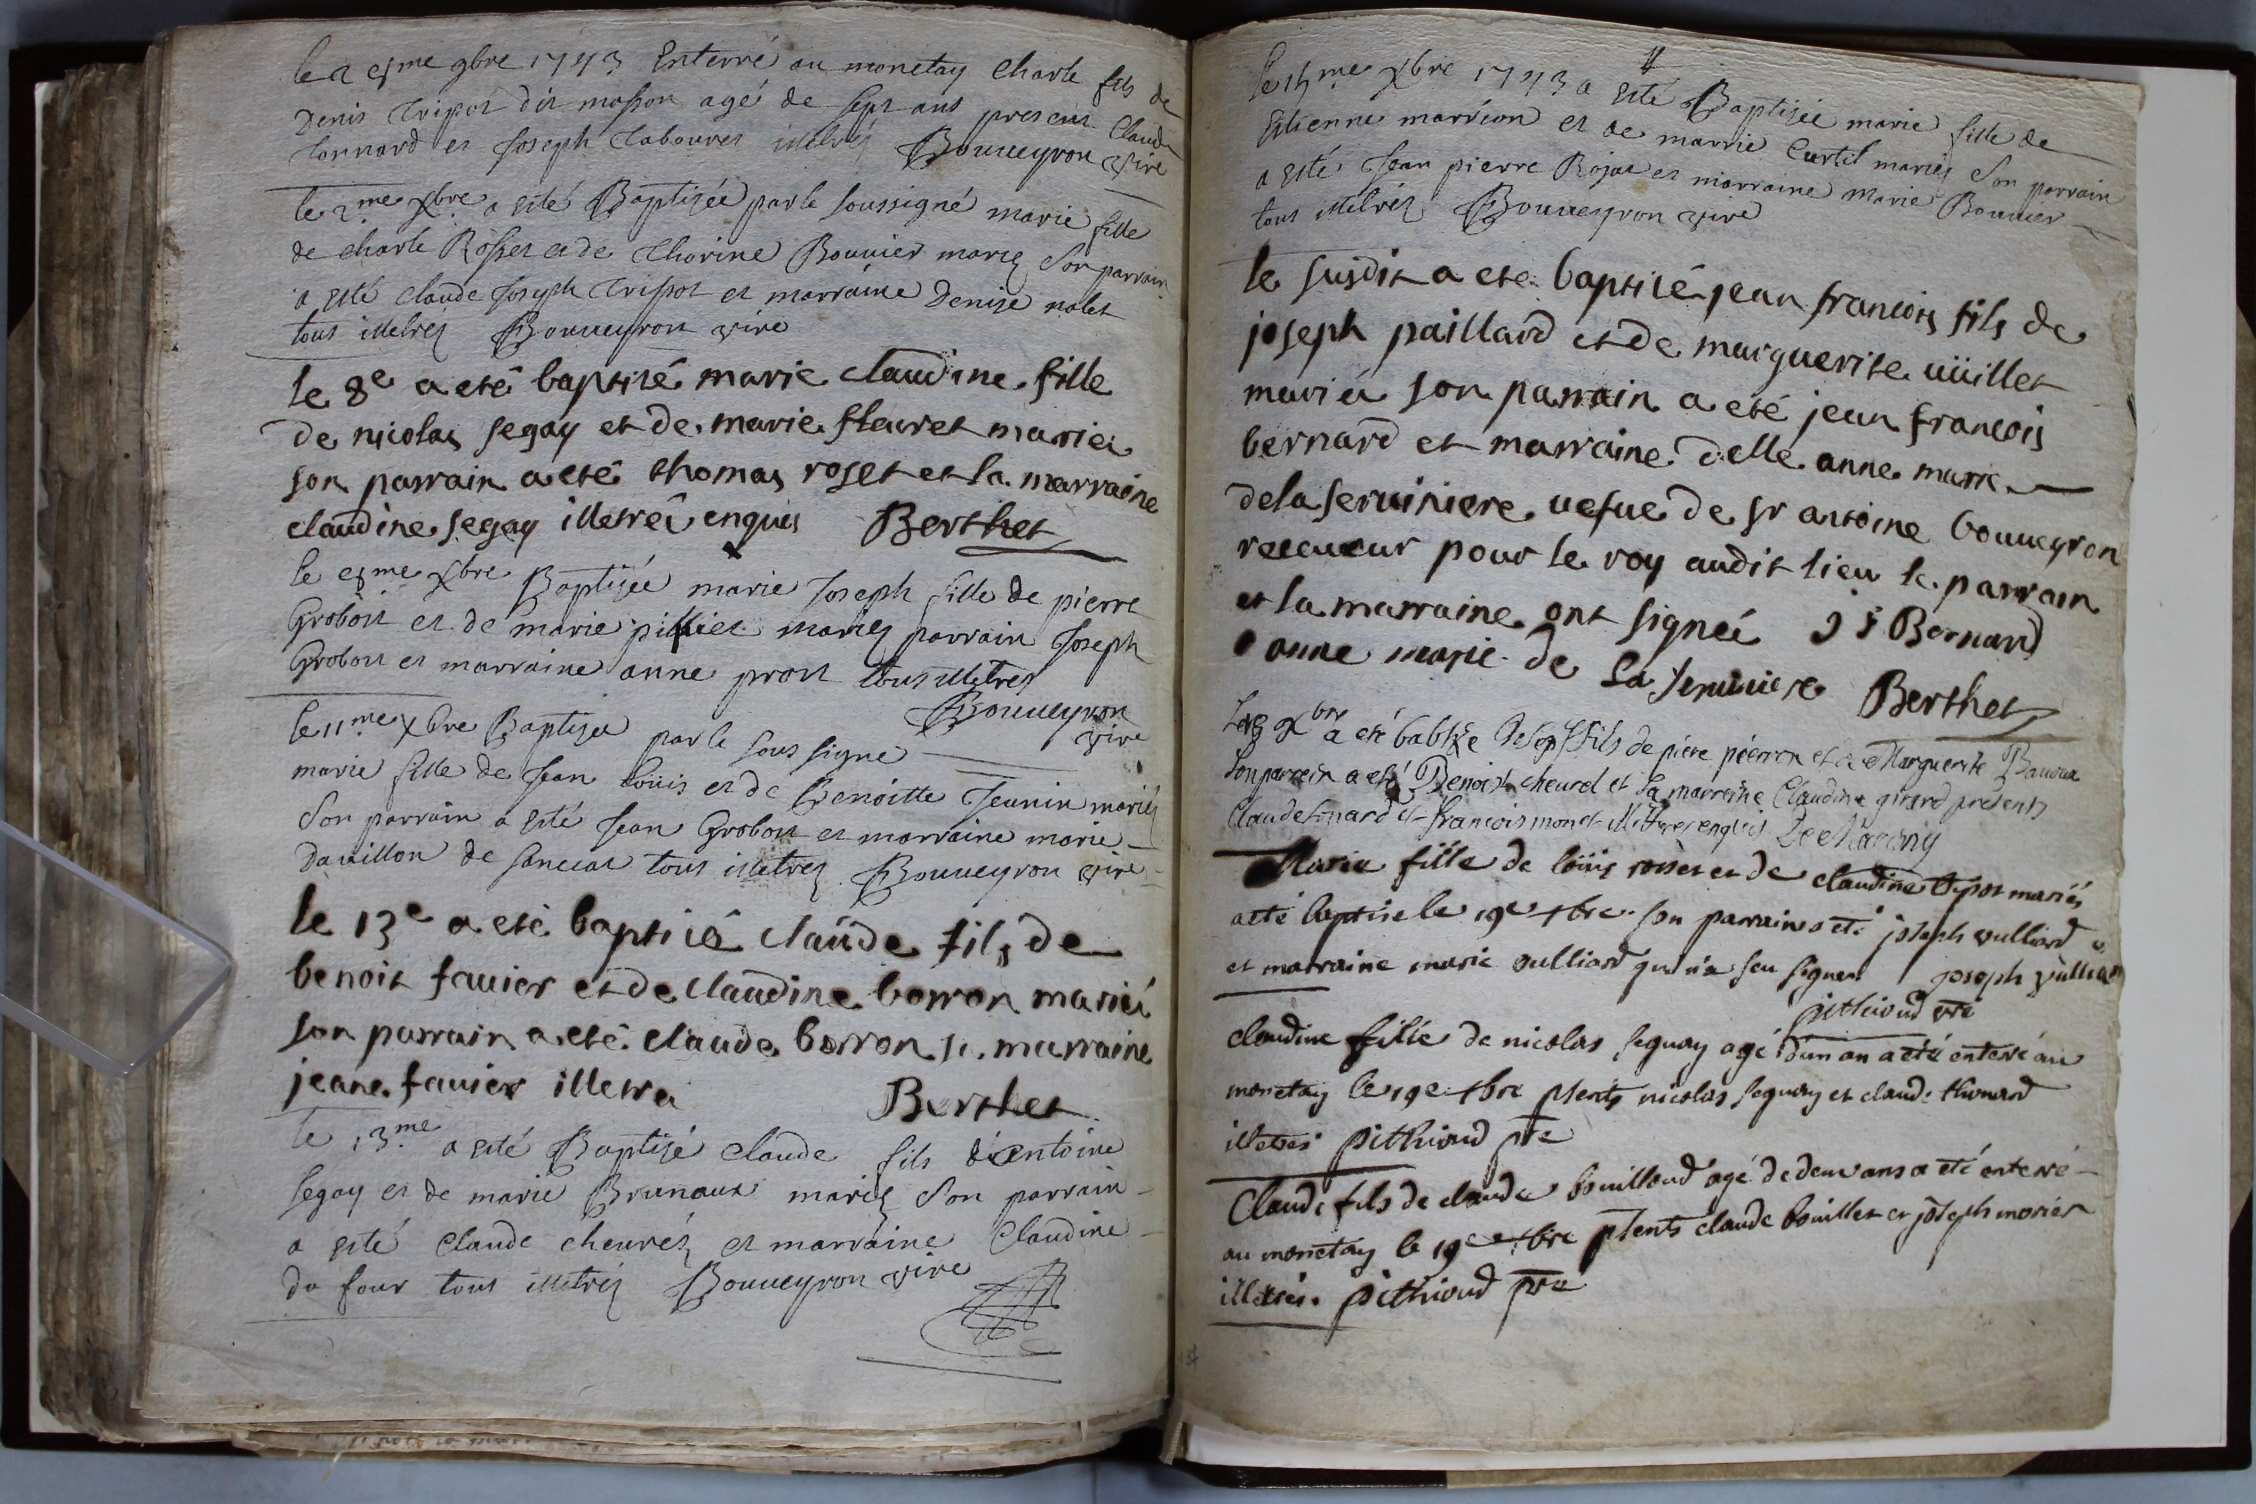 9bre 1743 Enterré au monetay Charle fils de
Denis Tripot dit masson agé de sept ans presens Claude
Tonnard et Joseph Tabouret illetrés Bouveyron vire
le 2me xbre a esté Baptizée par le soussigné marie fille
de Charle Rosset et de Thorine Bouvier mariez son parrain
a esté claude Joseph Tripot et marraine Denize nolet
tous illetrez Bouveyron vire
le 8e a eté baptisé marie claudine fille
de nicolas segay et de marie fleuret mariéz
son parrain a eté thomas roset et la marraine
claudine segay illetréz enquis Berthet
le xbre Baptizée marie Joseph fille de pierre
Grobost et de marie mariez parrain Joseph
Grobost et marraine anne prost tous illetrez
Bouveyron
vire
le 11me xbre Baptizée par le sous signé
marie fille de Jean Loüis et de Benoitte Jeunin mariéz
Son parrain a esté Jean Grobost et marraine marie
Davillon de tous illetrez Bouveyron vire
le 13e a eté baptisé claude fils de
benoit favier et de claudine borron mariéz
son parrain a eté claude borron sa marraine
jeane favier illetrez Berthet
le 13me a esté Baptizé Claude fils d'Antoine
segay et de marie Brunaux mariez Son parrain
a esté Claude cheuréz et marraine Claudine
du four tous illetréz Bouveyron vire
le 15me xbre 1743 a esté Baptizée marie fille de
Estienne marrion et de marrie Curtil mariéz Son parrain
a esté Jean pierre Rojat et marraine marie Bouvier
tous illetréz Bouveyron vire
le susdit a eté baptisé jean francois fils de
joseph paillard et de marguerite vüillet
mariéz son parrain a eté jean francois
bernard et marraine delle anne marie
de la serviniere vefve de sr antoine bouveyron
receveur pour le roy audit lieu le parrain
et la marraine ont signéz Bernard
anne marie de La Serviniere Berthet
xbre a eté babtise Joseph fils de piere péerron et de Marguerite
son parrein a eté Benoist cheurel et sa marreine Claudine girard presents
Claude tonard et francois monet illittres enquis
Marie fille de loüis rosset et de claudine tripot mariés
a eté baptisé le 19e xbre son parrain a eté joseph vulliard
et marraine marie vulliard qui n'a seu signer joseph vulliard
pithioud pre
claudine fille de nicolas seguay agé d'un an a eté enterré au
monetay le 19e xbre pñts nicolas seguay et claude thonard
illetrés pithioud pre
Claude fils de claude bouilloud agé de deux ans a eté enterré
au monetay le 19e xbre pñts claude bouillet et joseph morier
illetrés. pithioud pre